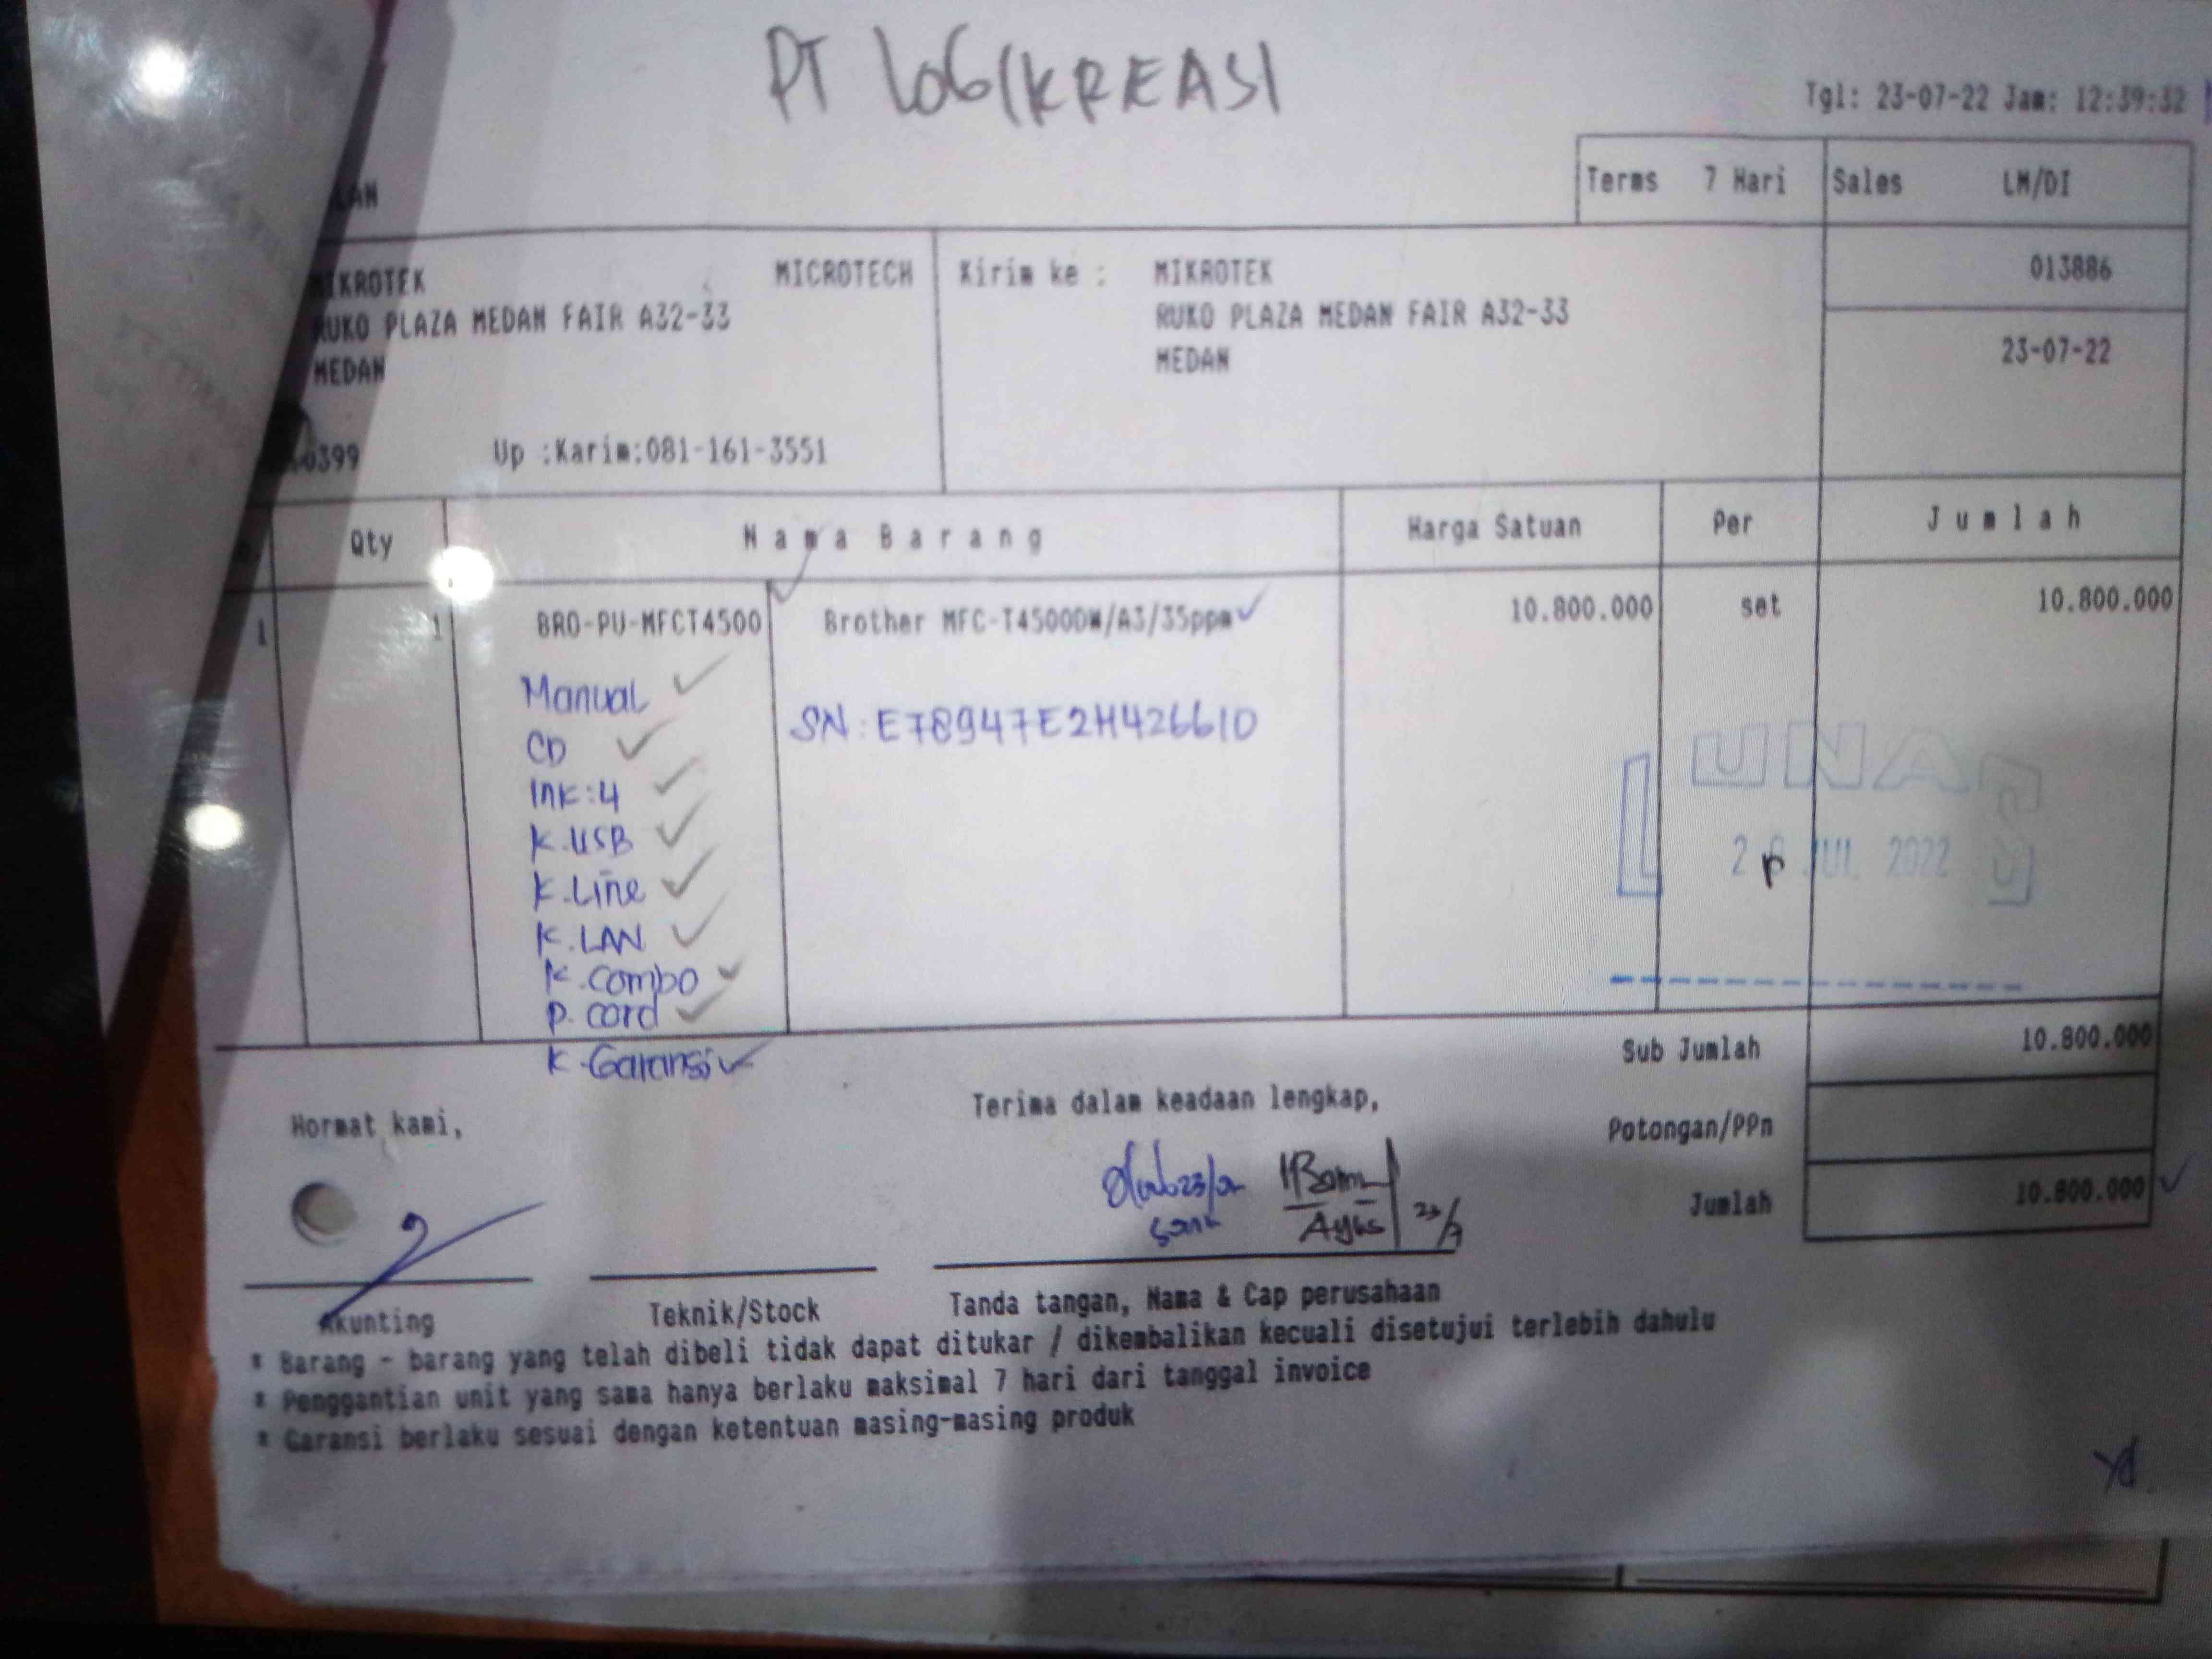 PT LOGIKREASI
Tgl: 23-07-22 Jam: 12:39:32
Terms 7 Hari Sales LM/DI
MIKROTEK MICROTECH Kirim ke : MIKROTEK 013886
RUKO PLAZA MEDAN FAIR A32-33 RUKO PLAZA MEDAN FAIR A32-33
MEDAN MEDAN 23-07-22
0399 Up :Karim:081-161-3551
Qty Nama Barang Harga Satuan Per Jumlah
1 1 BRO-PU-MFCT4500 Brother MFC-T4500DW/A3/35ppm 10.800.000 set 10.800.000
Manual
SN: E78947E2H426610
CD
Ink: 4
K. USB
K. Line
K. LAN
K. combo
P. cord
K. Garansi
LUNAS
JUL 2022
Sub Jumlah 10.800.000
Potongan/PPn
Jumlah 10.800.000
Hormat kami, Terima dalam keadaan lengkap,
23/7
Akunting Teknik/Stock Tanda tangan, Nama & Cap perusahaan
* Barang - barang yang telah dibeli tidak dapat ditukar / dikembalikan kecuali disetujui terlebih dahulu
* Penggantian unit yang sama hanya berlaku maksimal 7 hari dari tanggal invoice
* Garansi berlaku sesuai dengan ketentuan masing-masing produk